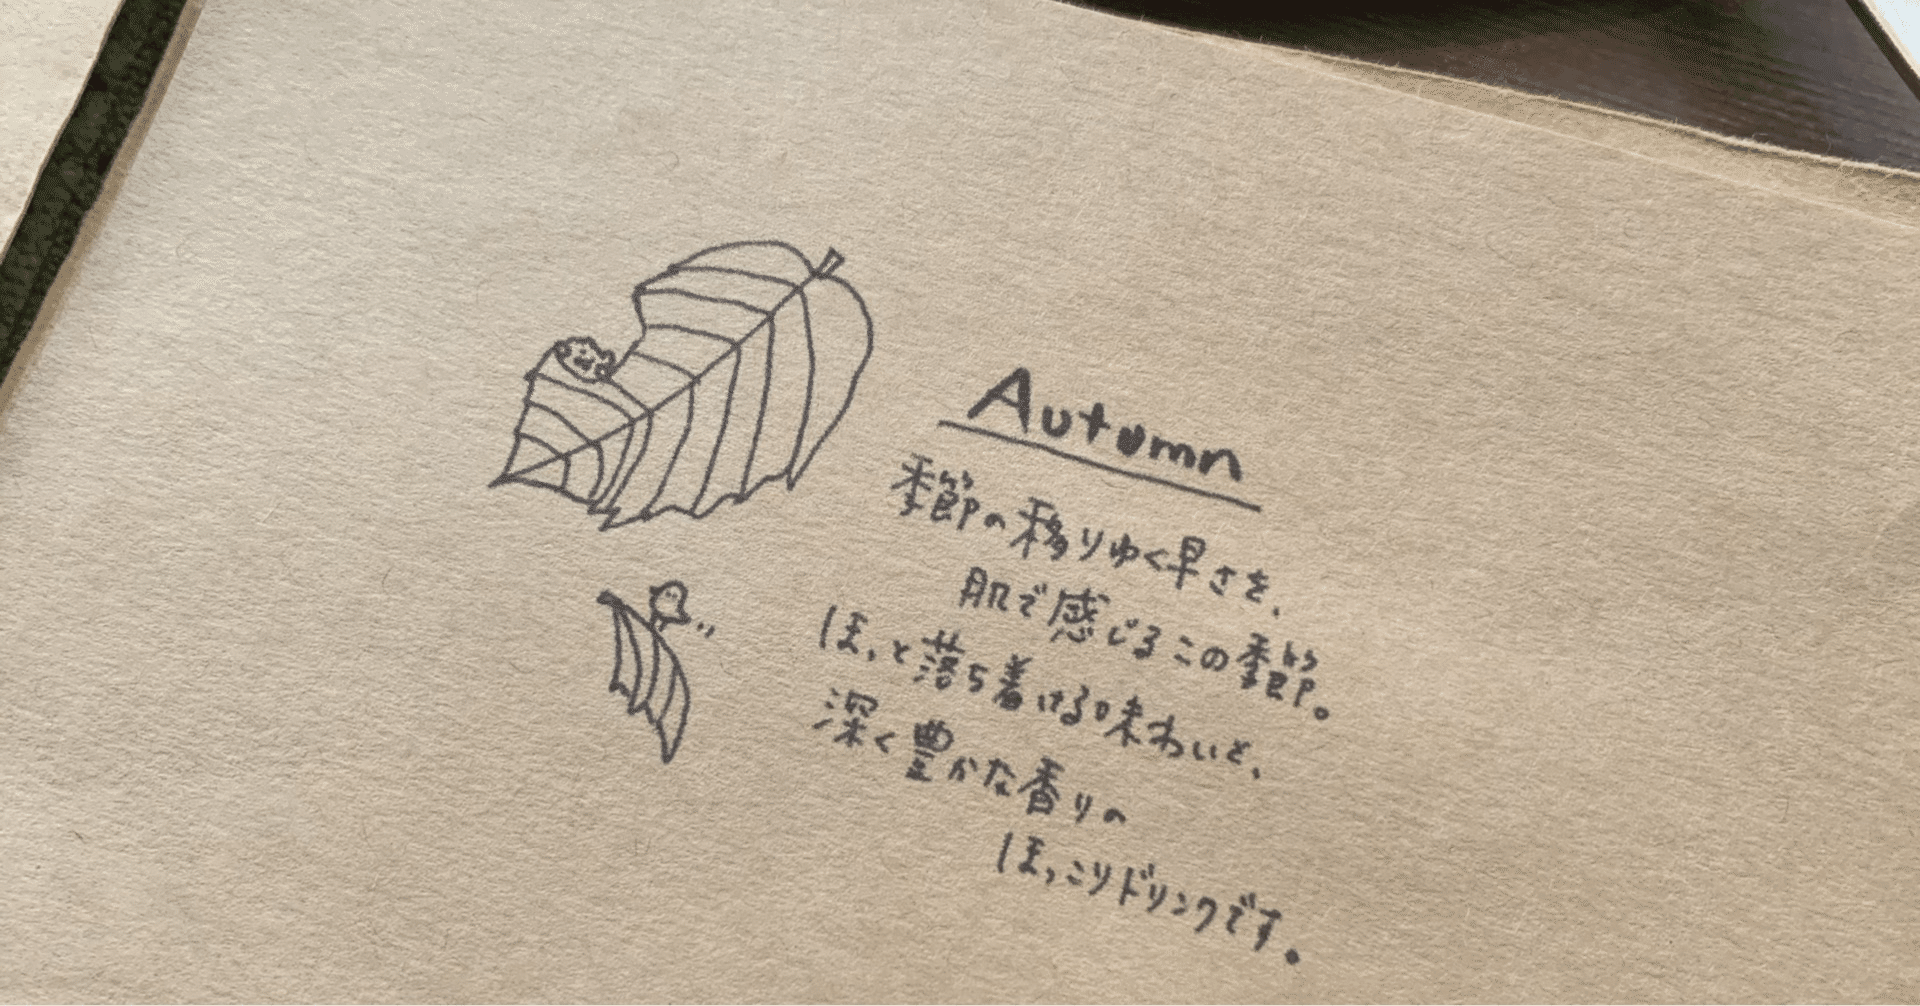 Autumn
季節の移りゆく早さを、
肌で感じるこの季節。
ほっと落ち着ける味わいと、
深く豊かな香りの
ほっこりドリンクです。